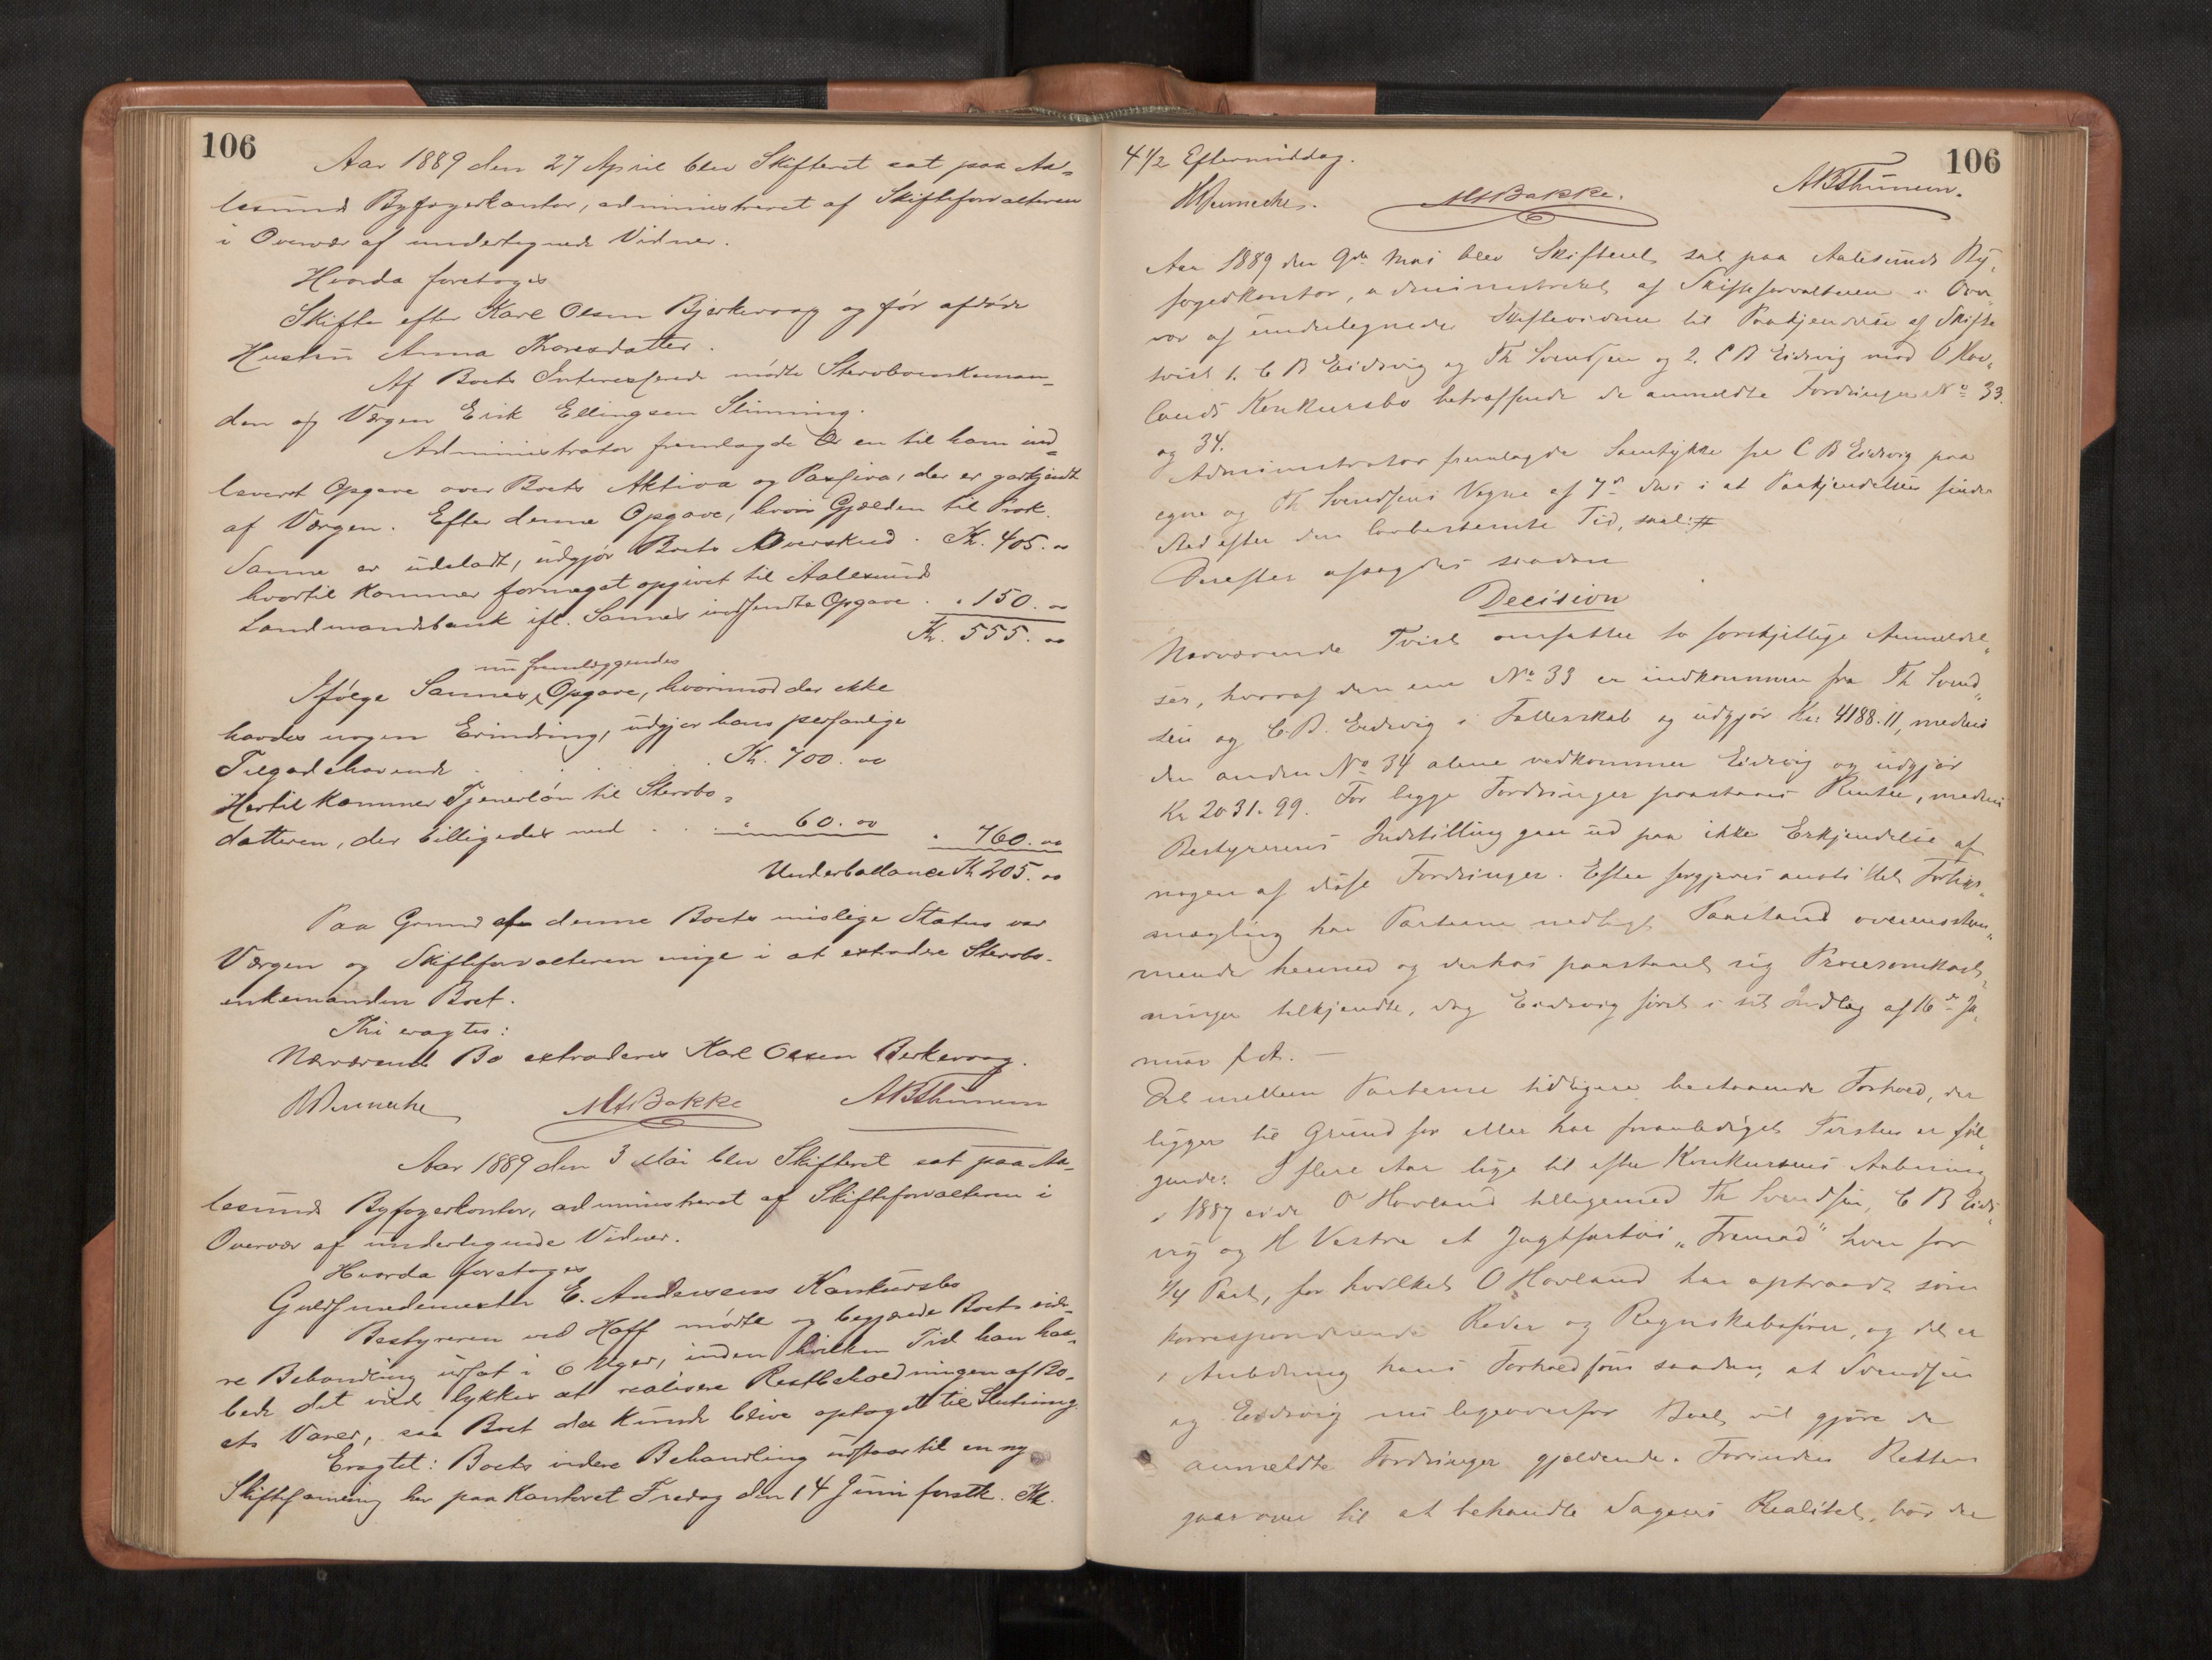 106
Aar 1889 den 27 April blev Skifteret sat paa Aa-
lesunds Byfogedkontor, administreret af Skifteforvalteren
i Overvær af undertegnede Vidner.
Hvorda foretoges
Skifte efter Karl Olsen Bjerkevaag og før afdøde
Hustru Anna Thoresdatter.
Af Boets Interesserede mødte Stervboenkeman-
den og Værgen Erik Ellingsen Slinning.
Administrator fremlagde en til ham ind-
leveret Opgave over Boets Aktiva og Passiva, der er godkjendt
af Værgen. Efter denne Opgave, hvori Gjælden til Prok.
Sanne er udeladt, udgjør Boets Overskud . Kr. 405.00
hvortil kommer formeget opgivet til Aalesunds
Landmandsbank ifl. Sannes indsendte Opgave . " 150.00
Kr. 555.00
nu fremlæggendes
Ifølge Sannes Opgave, hvorimod der ikke
havdes nogen Erindring, udgjør hans personlige
Tilgodehavende . . . . . Kr. 700.00
Hertil kommer Tjenerløn til Stervbo-
datteren, der billigedes med . . . " 60.00 " 760.00
Underballance Kr 205.00
Paa Grund af denne Boets mislige Status var
Værgen og Skifteforvalteren enige i at extradere Stervbo-
enkemanden Boet.
Thi eragtes:
Nærværende Bo extraderes Karl Olsen Berkevaag.
MHBakke ABThunem
Aar 1889 den 3 Mai blev Skifteret sat paa Aa-
lesunds Byfogedkontor, administreret af Skifteforvalteren i
Overvær af undertegnede Vidner.
Hvorda foretoges
Guldsmedemester E. Andersens Konkursbo
Bestyreren ved Hoff mødte og begjærede Boets vide-
re Behandling udsat i 6 Uger, inden hvilken Tid han haa-
bede det vilde lykkes at realisere Restbeholdningen af Bo-
ets Varer, saa Boet da kunde blive optaget til Slutning.
Eragtet: Boets videre Behandling udstaar til en ny
Skiftesamling her paa Kontoret Fredag den 14 Juni førstk. Kl.
106
4 1/2 Eftermiddag.
MHBakke. ABThunem.
Aar 1889 den 9de Mai blev Skifteret sat paa Aalesunds By-
fogedkontor, administreret af Skifteforvalteren i Over-
vær af undertegnede Skiftevidner til Paakjendelse af Skifte
tvist 1. C B Eidsvig og Th Svendsen og 2. C B Eidsvig mod O Hov-
lands Konkursbo betræffende de anmeldte Fordringer No 33
og 34.
Administrator fremlagde Samtykke fra C B Eidsvig paa
egne og Th Svendsens Vegne af 7de ds i at Paakjendelsen finder
Sted efter den lovbestemte Tid, saal. #
Derefter afsagdes saadan
Decision
Nærværende Tvist omfatter to forskjellige Anmeldel-
ser, hvoraf den ene No 33 er indkommen fra Th Svend-
sen og C.B. Eidsvig i Fællesskab og udgjør Kr. 4188.11, medens
den anden No 34 alene vedkommer Eidsvig og udgjør
Kr 2031.99. For begge Fordringer paastaaes Renter, medens
Bestyrerens Indstilling gaar ud paa ikke Erkjendelse af
nogen af disse Fordringer. Efter forgjæves anstillet Forligs-
mægling har Parterne nedlagt Paastand overensstem-
mende hermed og derhos paastaaet sig Procesomkost-
ninger tilkjendte, dog Eidsvig først i sit Indlæg af 16de Ja-
nuar d.A.
Det mellem Parterne tidligere bestaaende Forhold, der
ligger til Grund for eller har foranlediget Tvisten er føl-
gende: I flere Aar lige til efter Konkursens Aabning
i 1887 eide O Hovland tilligemed Th Svendsen, C B Eids-
vig og H Vestre et Jagtfartøi "Fremad" hver for
1/4 Part, for hvilket O Hovland har optraadt som
korresponderende Reder og Regnskabsfører, og det er
i Anledning hans Forhold som saadan, at Svendsen
og Eidsvig nu ligeoverfor Boet vil gjøre de
anmeldte Fordringer gjældende. Forinden Retten
gaar over til at behandle Sagens Realitet, bør der